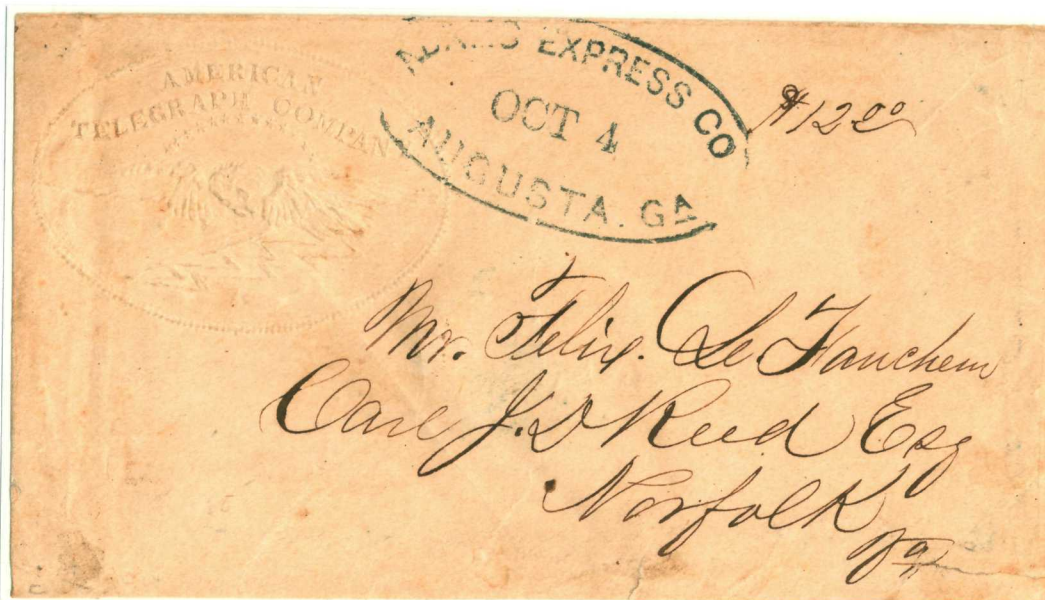 AMERICAN
TELEGRAPH COMPANY
ADAMS EXPRESS CO
OCT 4
AUGUSTA. GA
$12 00
Mr. Felix. Le. Fauchem
Care J. D Reed Esq
Norfolk
Va